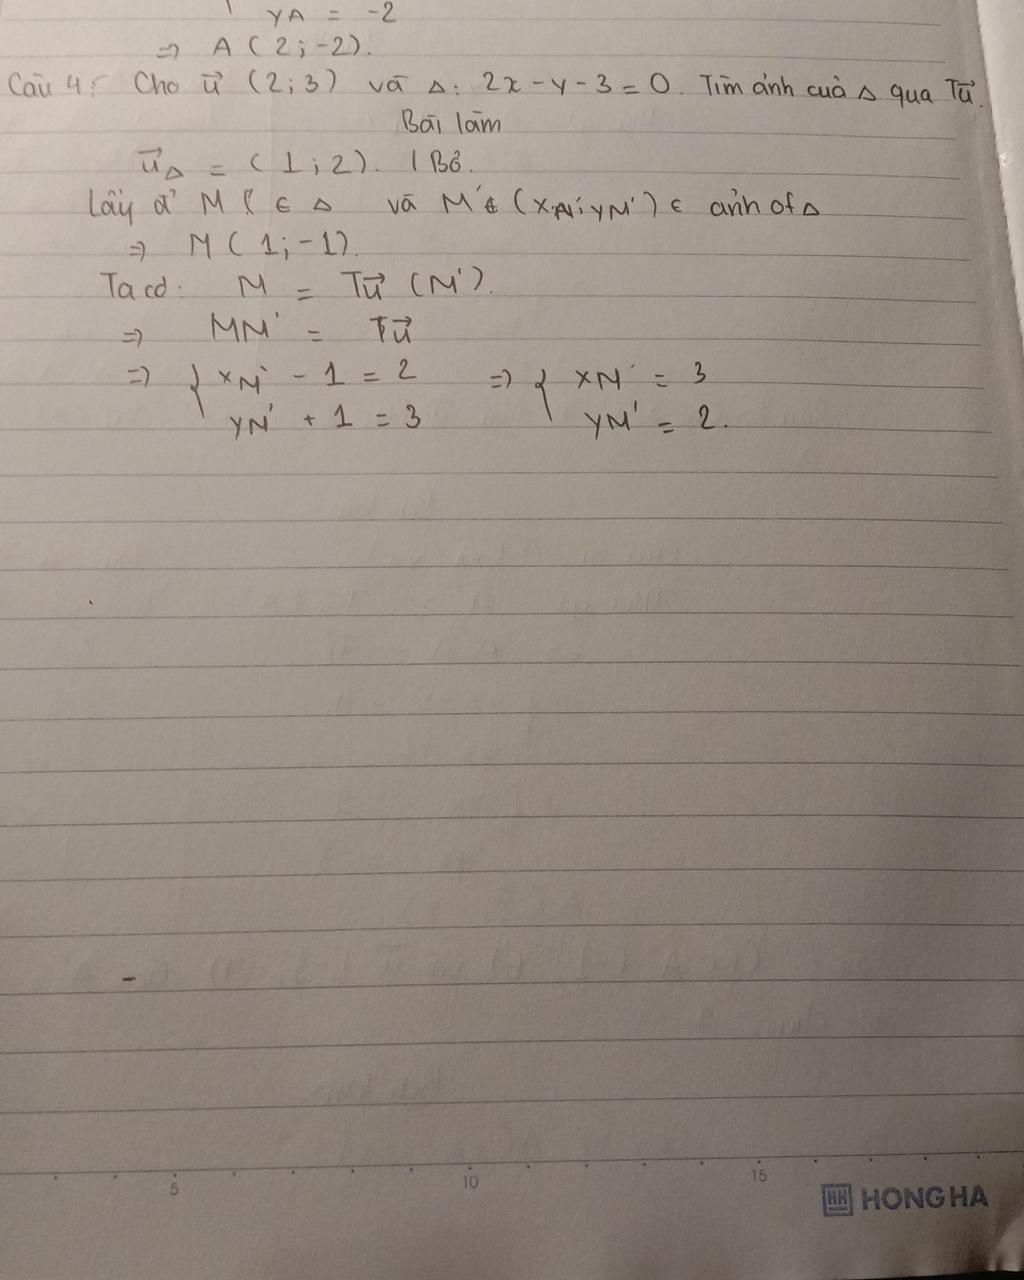 yA = -2
=> A ( 2 ; -2).
Câu 4: Cho u⃗ (2;3) và Δ: 2x - y - 3 = 0. Tìm ảnh của Δ qua Tu⃗.
Bài làm
u⃗Δ = ( 1 ; 2). | Bỏ.
Lấy đ' M ∈ Δ và M' (xM'; yM') ∈ ảnh of Δ
=> M ( 1 ; -1).
Ta có: M = Tu⃗ (M').
=> MM' = Tu⃗
=> { xM' - 1 = 2 => { xM' = 3
yM' + 1 = 3 yM' = 2.
5 10 15
HH HONG HA